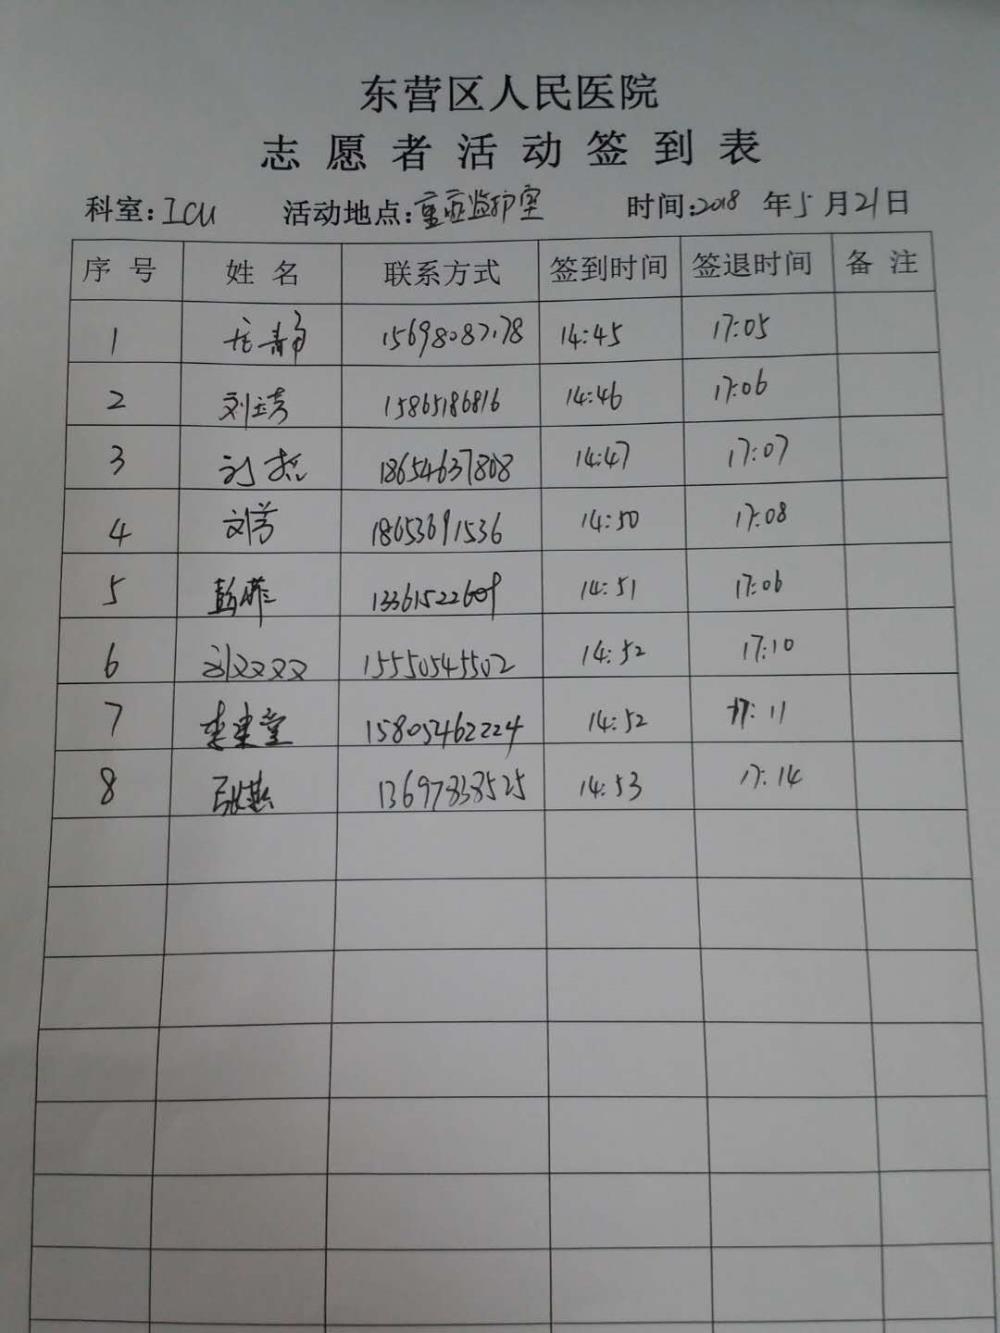 东营区人民医院
志愿者活动签到表
科室:ICU 活动地点:重症监护室 时间:2018 年5月21日
序号 姓名 联系方式 签到时间 签退时间 备注
1 静 14:45 17:05
2 刘 15865186816 14:46 17:06
3 刘 18654637808 14:47 17:07
4 刘芳 18653691536 14:50 17:08
5 彭 14:51 17:06
6 刘双双 15550545502 14:52 17:10
7 15805462224 14:52 17:11
8 张 13697838525 14:53 17:14